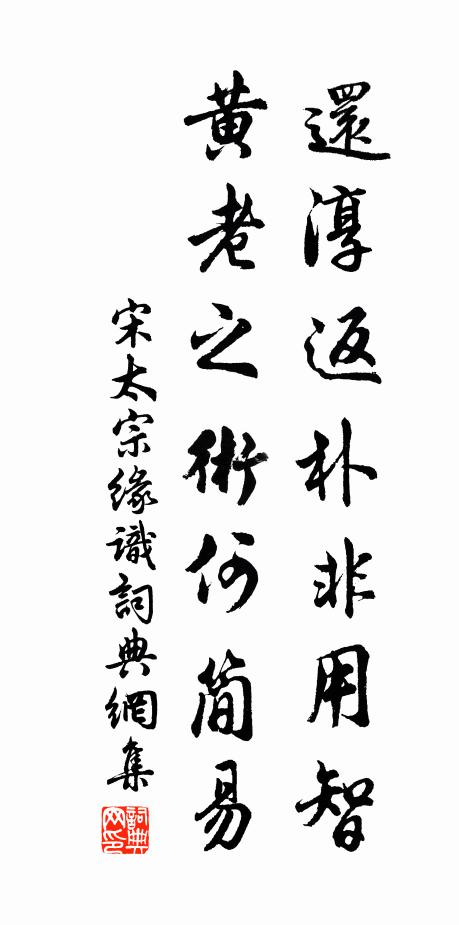 還淳返朴非用智
黃老之術何簡易
宋太宗緣識詞典網集
詞典网印